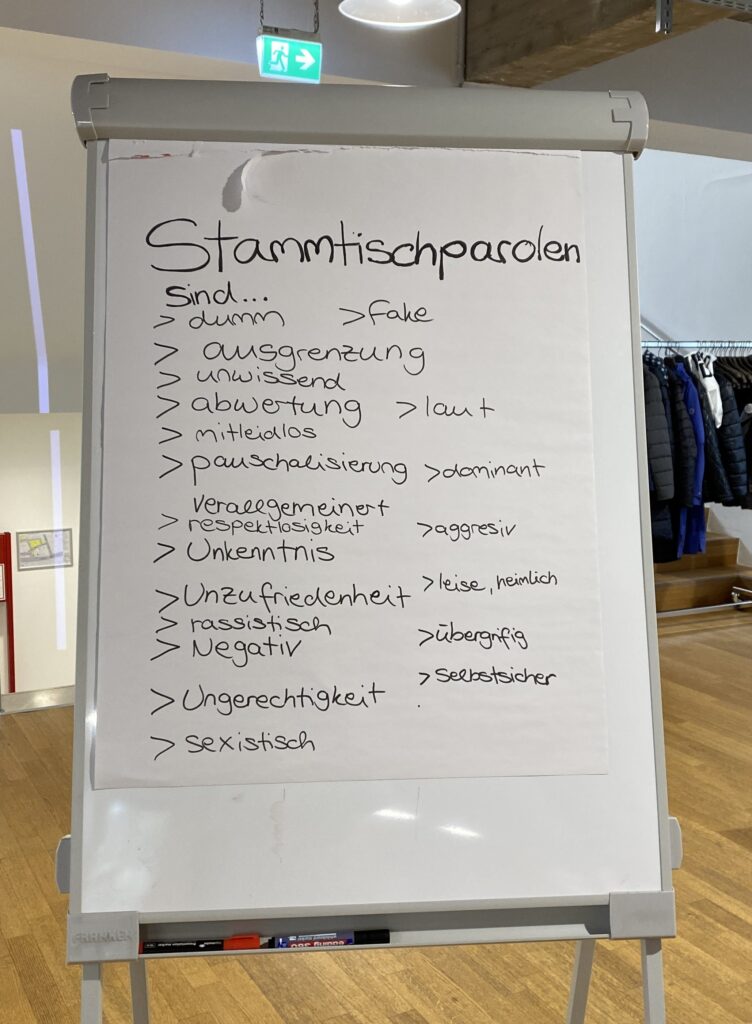 Stammtischparolen
Sind...
> dumm > Fake
> ausgrenzung
> unwissend
> abwertung > laut
> mitleidlos
> pauschalisierung > dominant
Verallgemeinert
> respektlosigkeit > aggresiv
> Unkenntnis
> Unzufriedenheit > leise, heimlich
> rassistisch
> Negativ > übergrifig
> Selbstsicher
> Ungerechtigkeit
> sexistisch
FRANKEN
edding 360